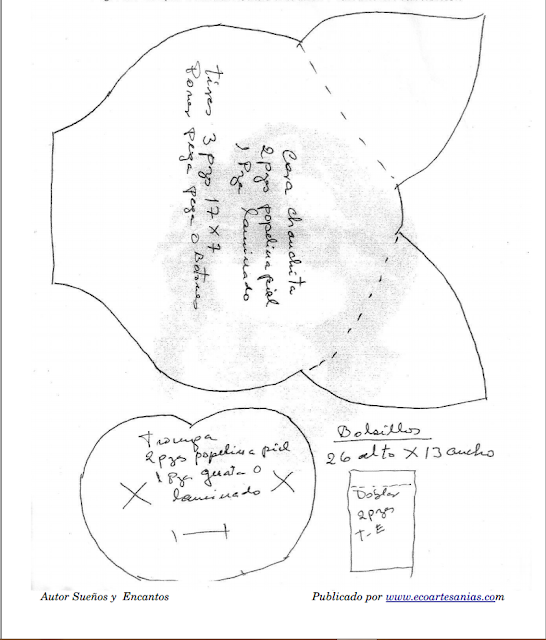 Cara chanchita
2 pzs popelina piel
1 pza laminado
tiras 3 pzs 17 x 7
Poner pega pega o Botones
Trompa
2 pzs popelina piel
1 pza guata o
laminado
Bolsillos
26 alto X 13 ancho
Doblar
2 pzs
T-E
Autor Sueños y Encantos
Publicado por www.ecoartesanias.com